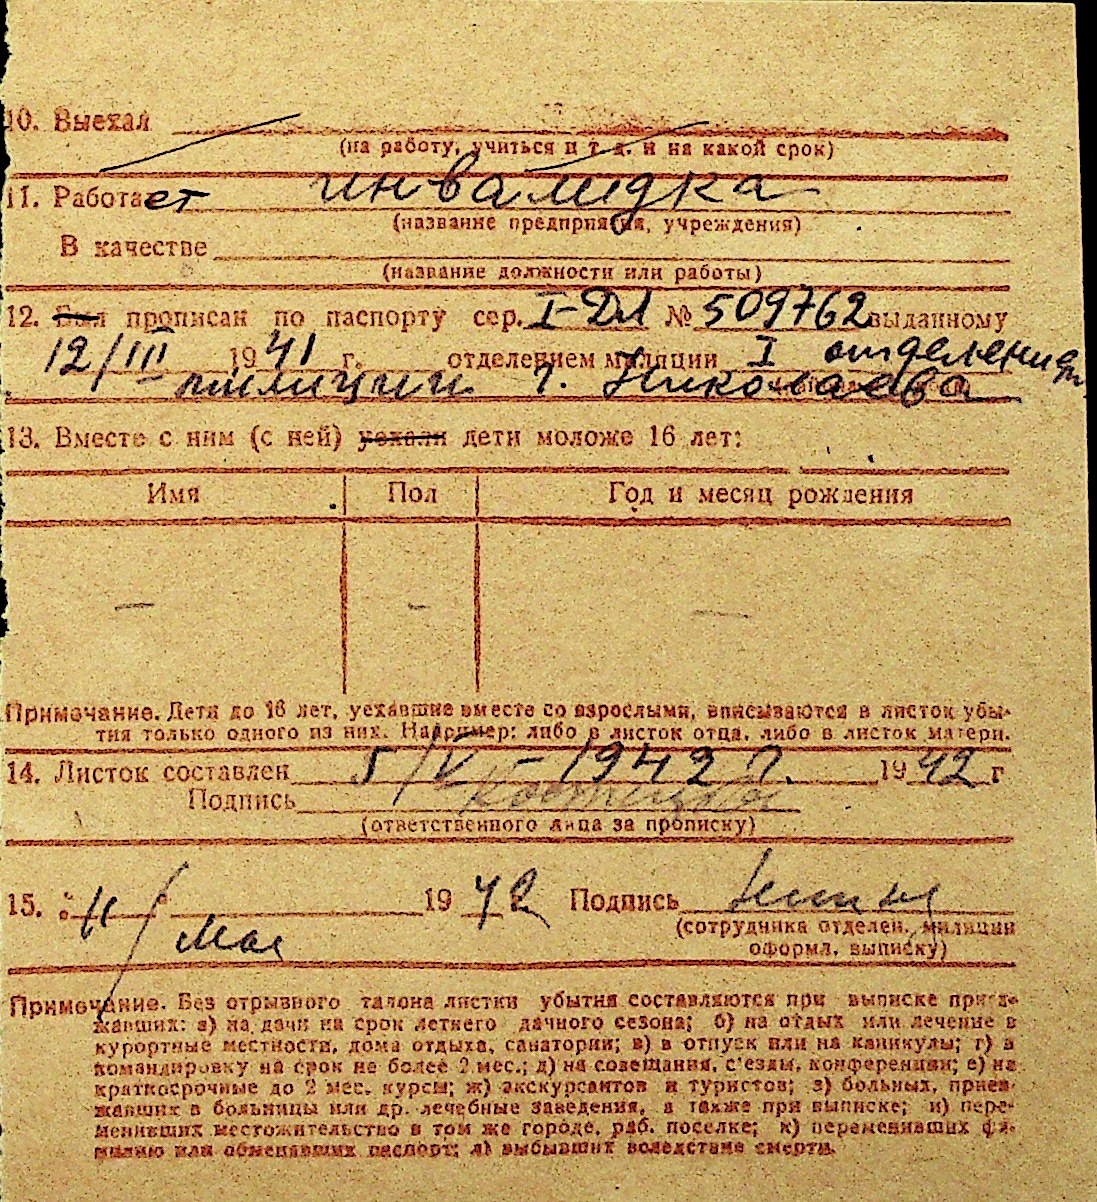 10. Выехал
(на работу, учиться и т. д. и на какой срок)
11. Работает инвалидка
(название предприятия, учреждения)
В качестве
(название должности или работы)
12. Был прописан по паспорту сер. I-ДЛ № 509762 выданному
12/III 1941 г. отделением милиции I отделением
милиции г. Николаева
13. Вместе с ним (с ней) уехали дети моложе 16 лет:
Имя Пол Год и месяц рождения
— - —
Примечание. Дети до 16 лет, уехавшие вместе со взрослыми, вписываются в листок убы-
тия только одного из них. Например: либо в листок отца, либо в листок матери.
14. Листок составлен 5/V - 1942 г. 1942 г
Подпись
(ответственного лица за прописку)
15. 11/ Мая 1942 Подпись
(сотрудника отделен. милиции
оформл. выписку)
Примечание. Без отрывного талона листки убытия составляются при выписке приез-
жавших: а) на дачи на срок летнего дачного сезона; б) на отдых или лечение в
курортные местности, дома отдыха, санатории; в) в отпуск или на каникулы; г) в
командировку на срок не более 2 мес.; д) на совещания, с'езды, конференции; е) на
краткосрочные до 2 мес. курсы; ж) экскурсантов и туристов; з) больных, приез-
жавших в больницы или др. лечебные заведения, а также при выписке; и) пере-
менивших местожительство в том же городе, раб. поселке; к) переменивших фа-
милию или обменявших паспорт; л) выбывших вследствие смерти.